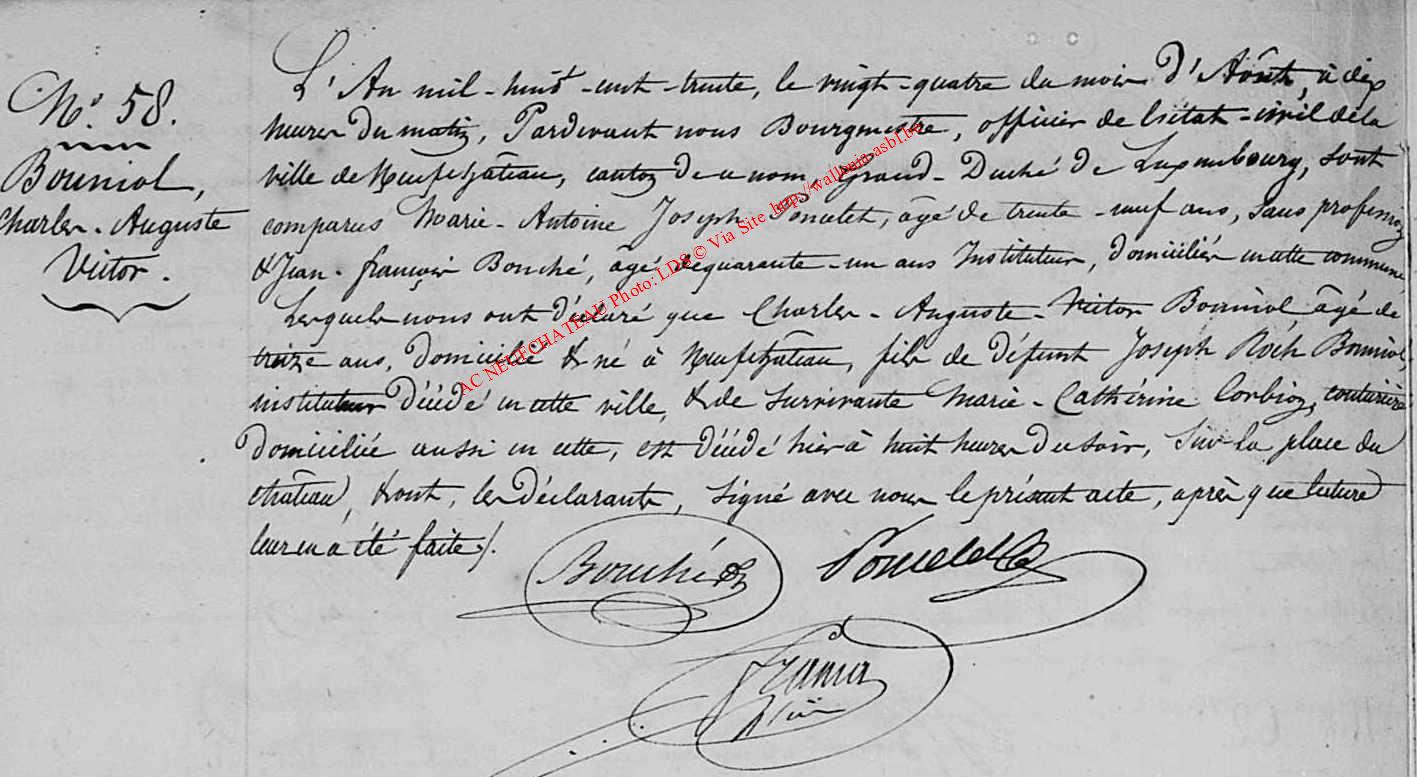 N.° 58.
Bouniol,
Charles-Auguste
Victor.
L'An mil-huit-cent-trente, le vingt-quatre du mois d'Août, à dix
heures du matin, Pardevant nous Bourgmestre, officier de l'état-civil de la
ville de Neufchâteau, canton de ce nom, Grand-Duché de Luxembourg, sont
comparus Marie-Antoine Joseph Poncelet, âgé de trente-neuf ans, sans profession
& Jean-françois Bouché, âgé de quarante-un ans Instituteur, domiciliés en cette commune
Lesquels nous ont déclaré que Charles-Auguste-Victor Bouniol âgé de
treize ans, domicilié & né à Neufchâteau, fils de défunt Joseph Roch Bouniol,
instituteur décédé en cette ville, & de survivante Marie-Cathérine Corbion, couturière
domiciliée aussi en cette, est décédé hier à huit heures du soir, sur la place du
château, & ont, les déclarants, signé avec nous le présent acte, après que lecture
leur en a été faite /.
Bouché Poncelet
AC NEUFCHATEAU Photo: LDS © Via Site http://wallonia-asbl.be